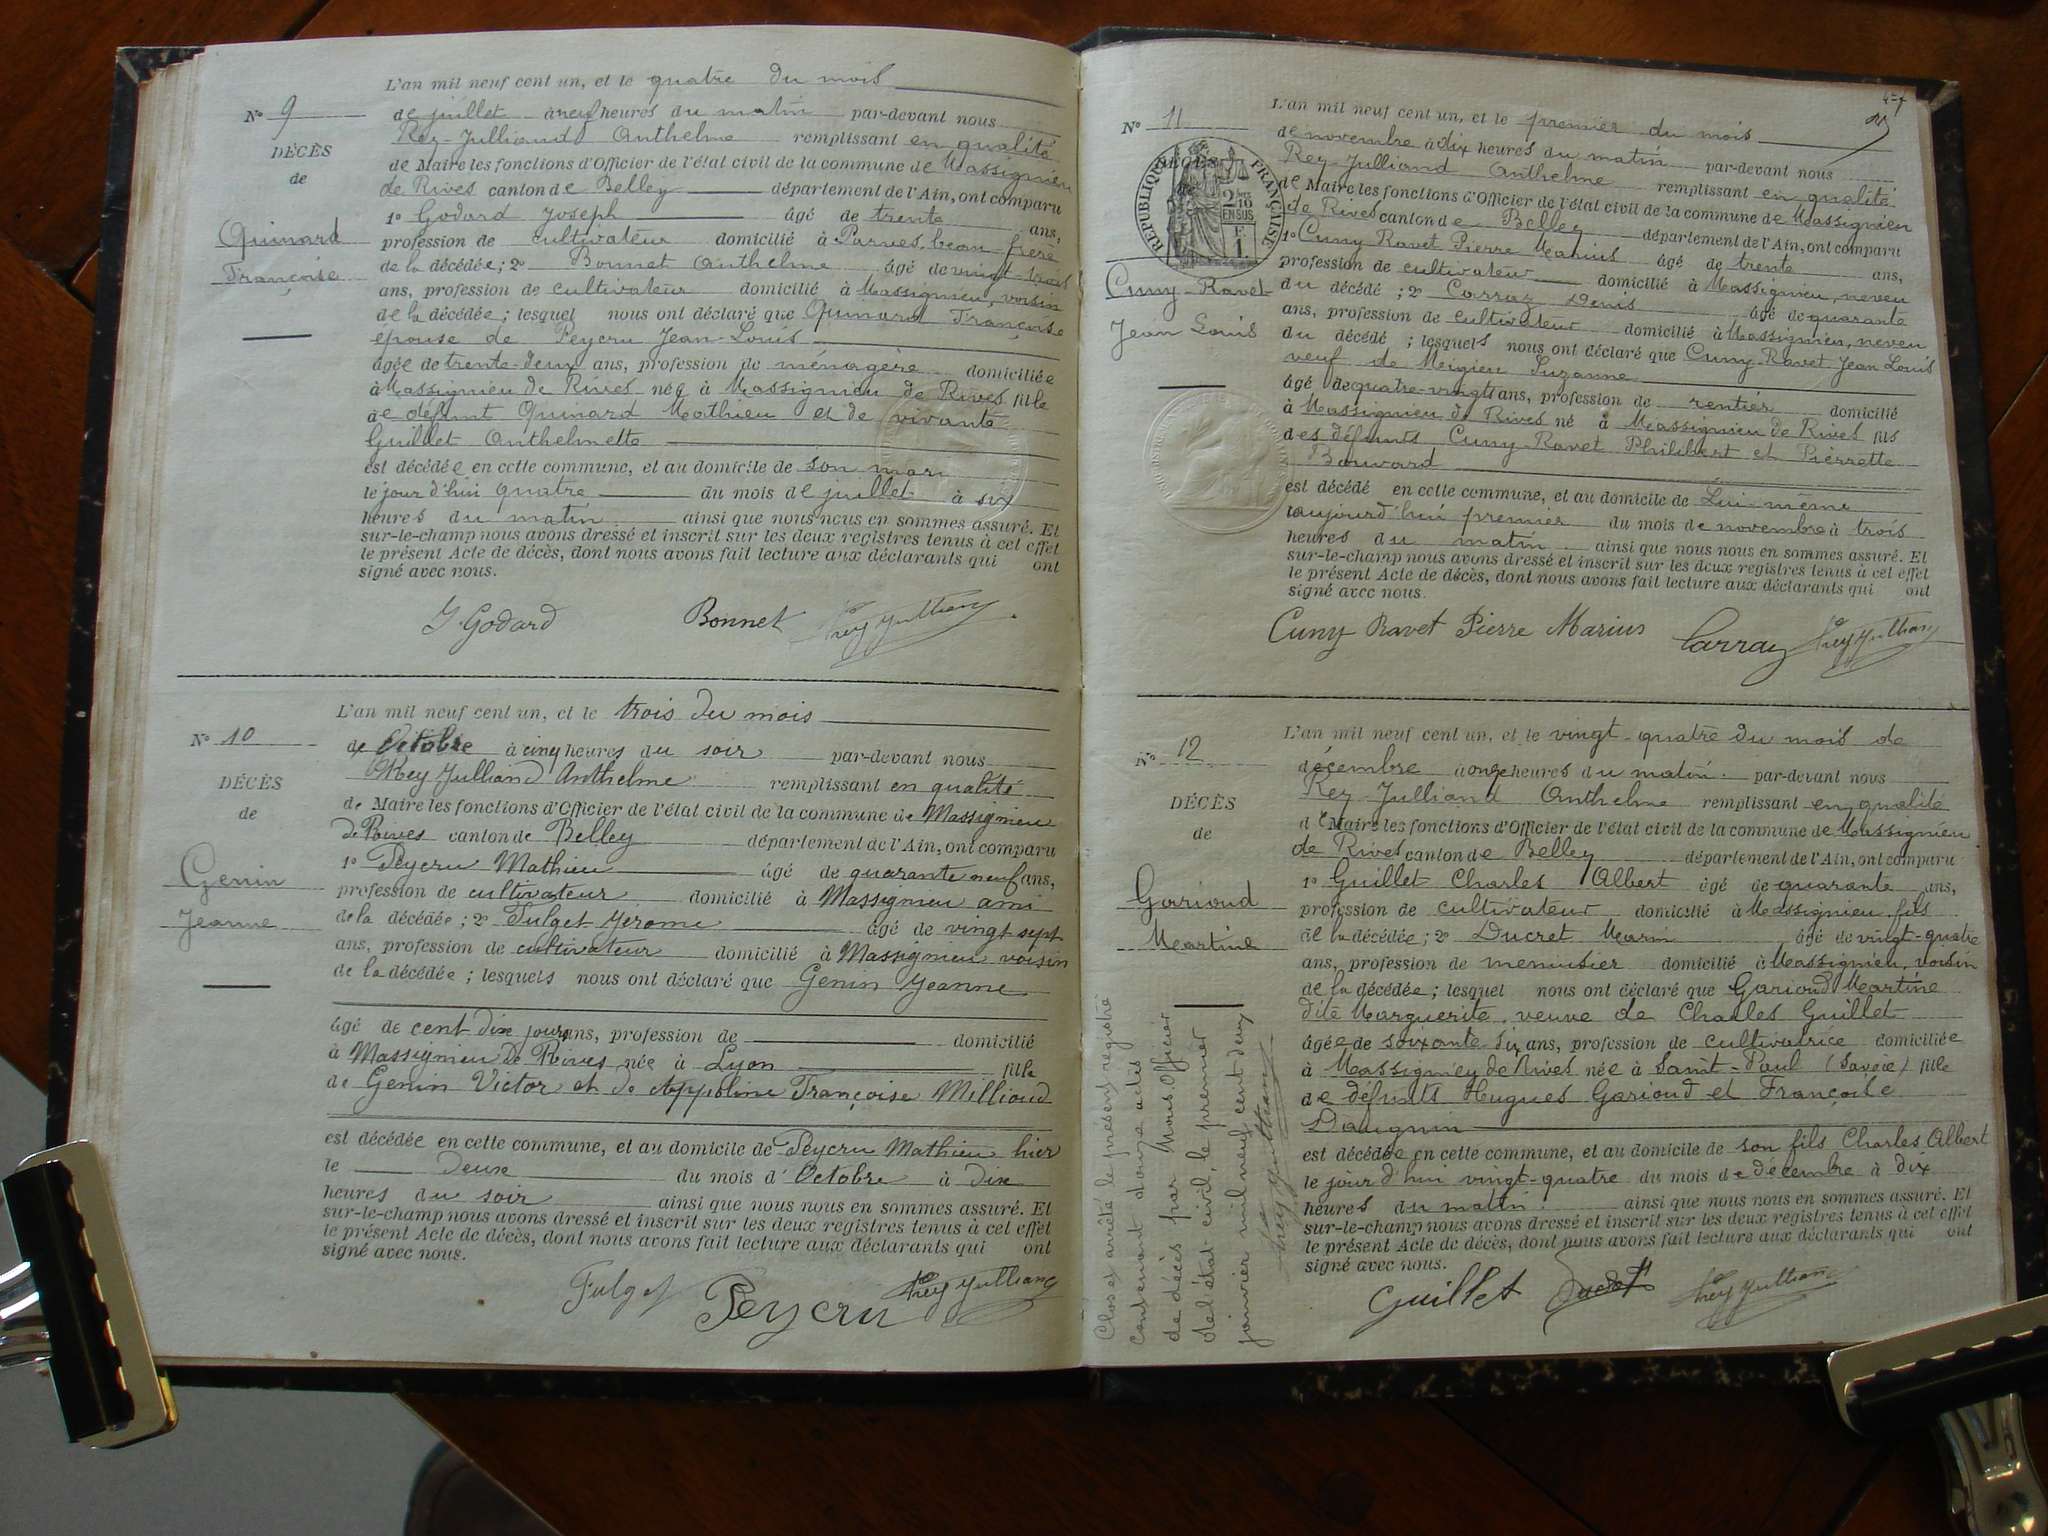 L'an mil neuf cent un, et le quatre du mois
N° 9
de juillet à neuf heures du matin par-devant nous
Rey-Julliand Anthelme remplissant en qualité
DÉCÈS
de Maire les fonctions d'Officier de l'état civil de la commune de Massignieu
de
de Rives canton de Belley département de l'Ain, ont comparu
1° Godard Joseph âgé de trente ans,
Quinard
profession de cultivateur domicilié à Parves, beau-frère
Françoise
de la décédée; 2° Bonnet Anthelme âgé de vingt-trois
ans, profession de cultivateur domicilié à Massignieu, voisin
de la décédée; lesquel nous ont déclaré que Quinard Françoise
épouse de Peycru Jean-Louis
âgée de trente-deux ans, profession de ménagère domiciliée
à Massignieu de Rives née à Massignieu de Rives fille
de défunt Quinard Mathieu et de vivante
Guillet Anthelmette
est décédée en cette commune, et au domicile de son mari
le jour d'hui quatre du mois de juillet à six
heures du matin ainsi que nous nous en sommes assuré. Et
sur-le-champ nous avons dressé et inscrit sur les deux registres tenus à cet effet
le présent Acte de décès, dont nous avons fait lecture aux déclarants qui ont
signé avec nous.
J. Godard Bonnet Rey Julliand
L'an mil neuf cent un, et le trois du mois
N° 10
de Octobre à cinq heures du soir par-devant nous
Rey Julliand Anthelme remplissant en qualité
DÉCÈS
de Maire les fonctions d'Officier de l'état civil de la commune de Massignieu
de
de Rives canton de Belley département de l'Ain, ont comparu
1° Peycru Mathieu âgé de quarante neuf ans,
Genin
profession de cultivateur domicilié à Massignieu ami
Jeanne
de la décédée; 2° Fulget Jerome âgé de vingt sept
ans, profession de cultivateur domicilié à Massignieu voisin
de la décédée; lesquels nous ont déclaré que Genin Jeanne
âgé de cent dix jours ans, profession de domicilié
à Massignieu de Rives née à Lyon fille
de Genin Victor et de Appoline Françoise Millioud
est décédée en cette commune, et au domicile de Peycru Mathieu hier
le deux du mois d'Octobre à dix
heures du soir ainsi que nous nous en sommes assuré. Et
sur-le-champ nous avons dressé et inscrit sur les deux registres tenus à cet effet
le présent Acte de décès, dont nous avons fait lecture aux déclarants qui ont
signé avec nous.
Fulget Peycru Rey Julliand
L'an mil neuf cent un, et le premier du mois
N° 11
de novembre à dix heures du matin par-devant nous
Rey-Julliand Anthelme remplissant en qualité
DÉCÈS
RÉPUBLIQUE FRANÇAISE
2/10 EN SUS
F. 1
de Maire les fonctions d'Officier de l'état civil de la commune de Massignieu
de Rives canton de Belley département de l'Ain, ont comparu
1° Cuny Ravet Pierre Marius âgé de trente ans,
profession de cultivateur domicilié à Massignieu, neveu
Cuny-Ravet
du décédé; 2° Carraz Denis âgé de quarante
Jean Louis
ans, profession de cultivateur domicilié à Massignieu, neveu
du décédé; lesquels nous ont déclaré que Cuny-Ravet Jean Louis
veuf de Meigieu Suzanne
âgé de quatre-vingts ans, profession de rentier domicilié
à Massignieu de Rives né à Massignieu de Rives fils
des défunts Cuny-Ravet Philibert et Pierrette
Bouvard
est décédé en cette commune, et au domicile de Lui-même
aujourd'hui premier du mois de novembre à trois
heures du matin ainsi que nous nous en sommes assuré. Et
sur-le-champ nous avons dressé et inscrit sur les deux registres tenus à cet effet
le présent Acte de décès, dont nous avons fait lecture aux déclarants qui ont
signé avec nous.
Cuny Ravet Pierre Marius Carraz Rey Julliand
L'an mil neuf cent un, et le vingt-quatre du mois de
N° 12
décembre à onze heures du matin par-devant nous
Rey-Julliand Anthelme remplissant en qualité
DÉCÈS
de Maire les fonctions d'Officier de l'état civil de la commune de Massignieu
de
de Rives canton de Belley département de l'Ain, ont comparu
1° Guillet Charles Albert âgé de quarante ans,
Garioud
profession de cultivateur domicilié à Massignieu, fils
Martine
de la décédée; 2° Ducret Marin âgé de vingt-quatre
ans, profession de menuisier domicilié à Massignieu, voisin
de la décédée; lesquel nous ont déclaré que Garioud Martine
dite Marguerite, veuve de Charles Guillet
âgée de soixante dix ans, profession de cultivatrice domiciliée
à Massigney de Rives née à Saint-Paul (Savoie) fille
de défunts Hugues Garioud et Françoise
Dauguin
est décédée en cette commune, et au domicile de son fils Charles Albert
le jour d'hui vingt-quatre du mois de décembre à dix
heures du matin ainsi que nous nous en sommes assuré. Et
sur-le-champ nous avons dressé et inscrit sur les deux registres tenus à cet effet
le présent Acte de décès, dont nous avons fait lecture aux déclarants qui ont
signé avec nous.
Guillet Ducret Rey Julliand
Clos et arrêté le présent registre
contenant douze actes
de décès par Nous Officier
de l'état-civil, le premier
janvier mil neuf cent deux
Rey Julliand